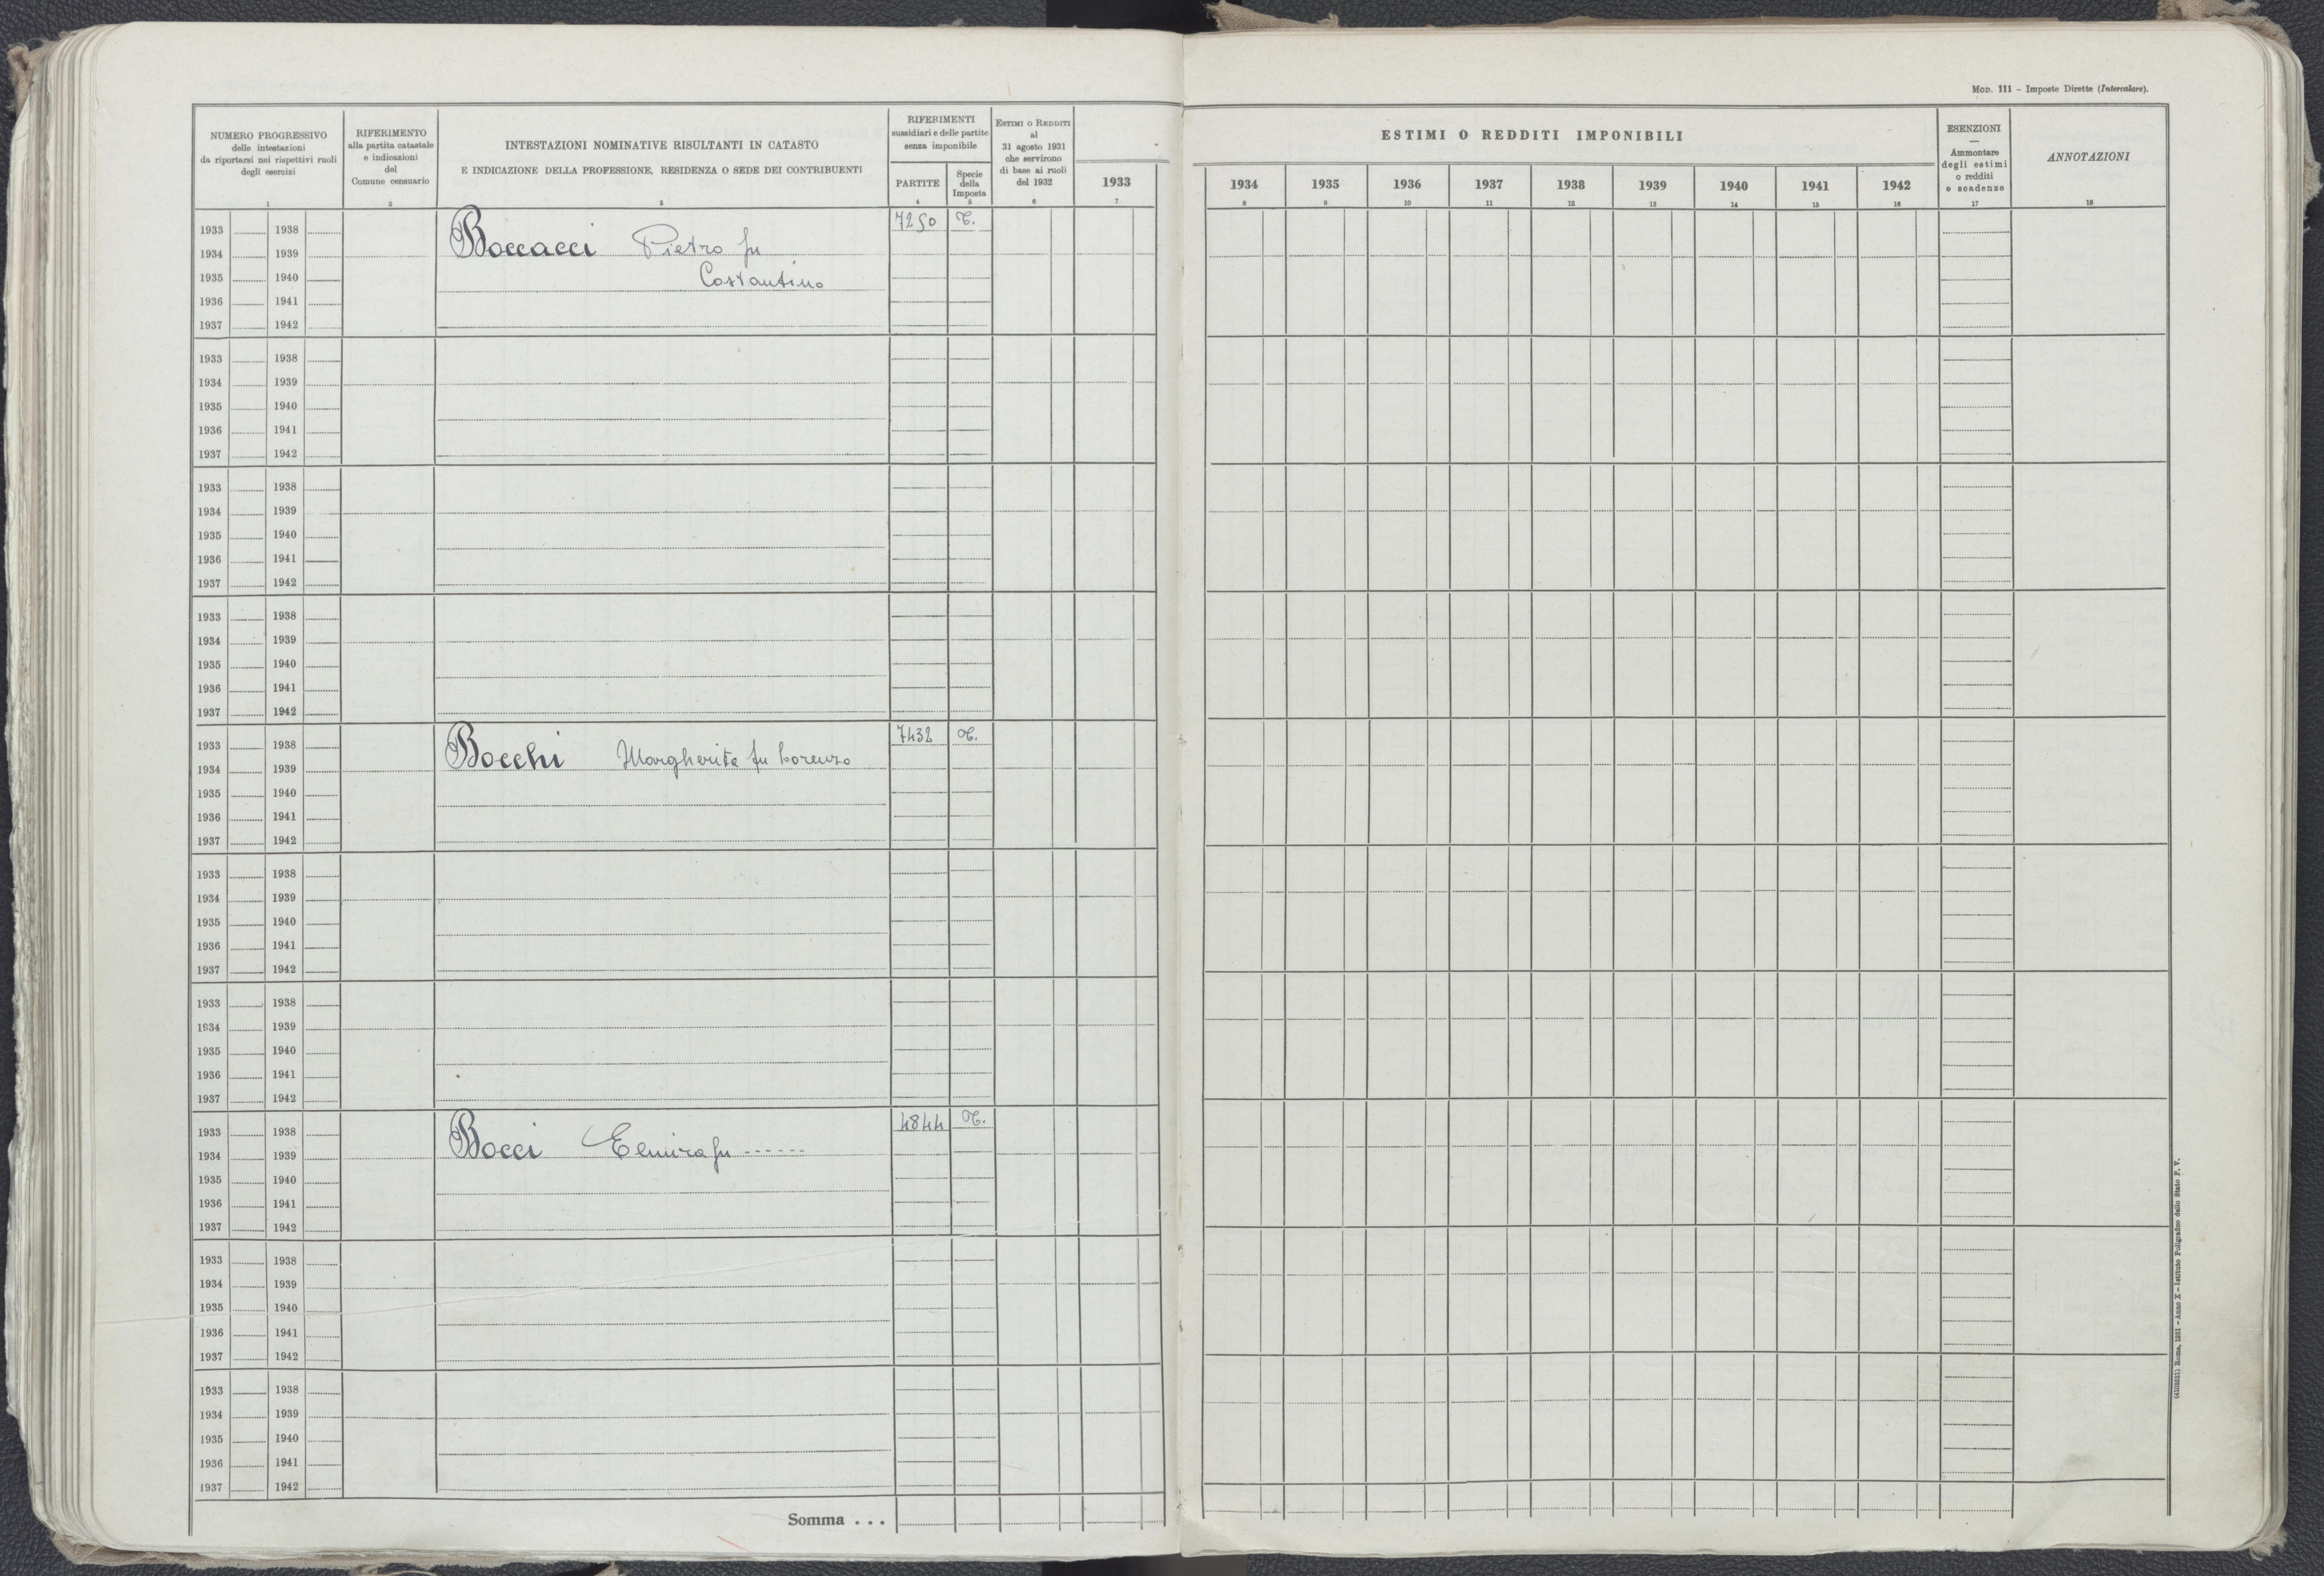 MOD. 111 – Imposte Dirette (Intercalare).
NUMERO PROGRESSIVO
delle intestazioni
da riportarsi nei rispettivi ruoli
degli esercizi
1
RIFERIMENTO
alla partita catastale
e indicazioni
del
Comune censuario
2
INTESTAZIONI NOMINATIVE RISULTANTI IN CATASTO
E INDICAZIONE DELLA PROFESSIONE, RESIDENZA O SEDE DEI CONTRIBUENTI
3
RIFERIMENTI
sussidiari e delle partite
senza imponibile
PARTITE
4
Specie
della
Imposta
5
ESTIMI O REDDITI
al
31 agosto 1931
che servirono
di base ai ruoli
del 1932
6
1933
7
ESTIMI O REDDITI IMPONIBILI
1934 1935 1936 1937 1938 1939 1940 1941 1942
8 9 10 11 12 13 14 15 16
ESENZIONI
—
Ammontare
degli estimi
o redditi
e scadenze
17
ANNOTAZIONI
18
1933 1938 7250 T.
1934 1939 Boccacci Pietro fu
1935 1940 Costantino
1936 1941
1937 1942
1933 1938
1934 1939
1935 1940
1936 1941
1937 1942
1933 1938
1934 1939
1935 1940
1936 1941
1937 1942
1933 1938
1934 1939
1935 1940
1936 1941
1937 1942
1933 1938 7432 T.
1934 1939 Bocchi Margherita fu Lorenzo
1935 1940
1936 1941
1937 1942
1933 1938
1934 1939
1935 1940
1936 1941
1937 1942
1933 1938
1934 1939
1935 1940
1936 1941
1937 1942
1933 1938 4844 T.
1934 1939 Bocci Elmira fu ------
1935 1940
1936 1941
1937 1942
1933 1938
1934 1939
1935 1940
1936 1941
1937 1942
1933 1938
1934 1939
1935 1940
1936 1941
1937 1942
Somma . . .
Roma, 1931 – Anno X – Istituto Poligrafico dello Stato P. V.